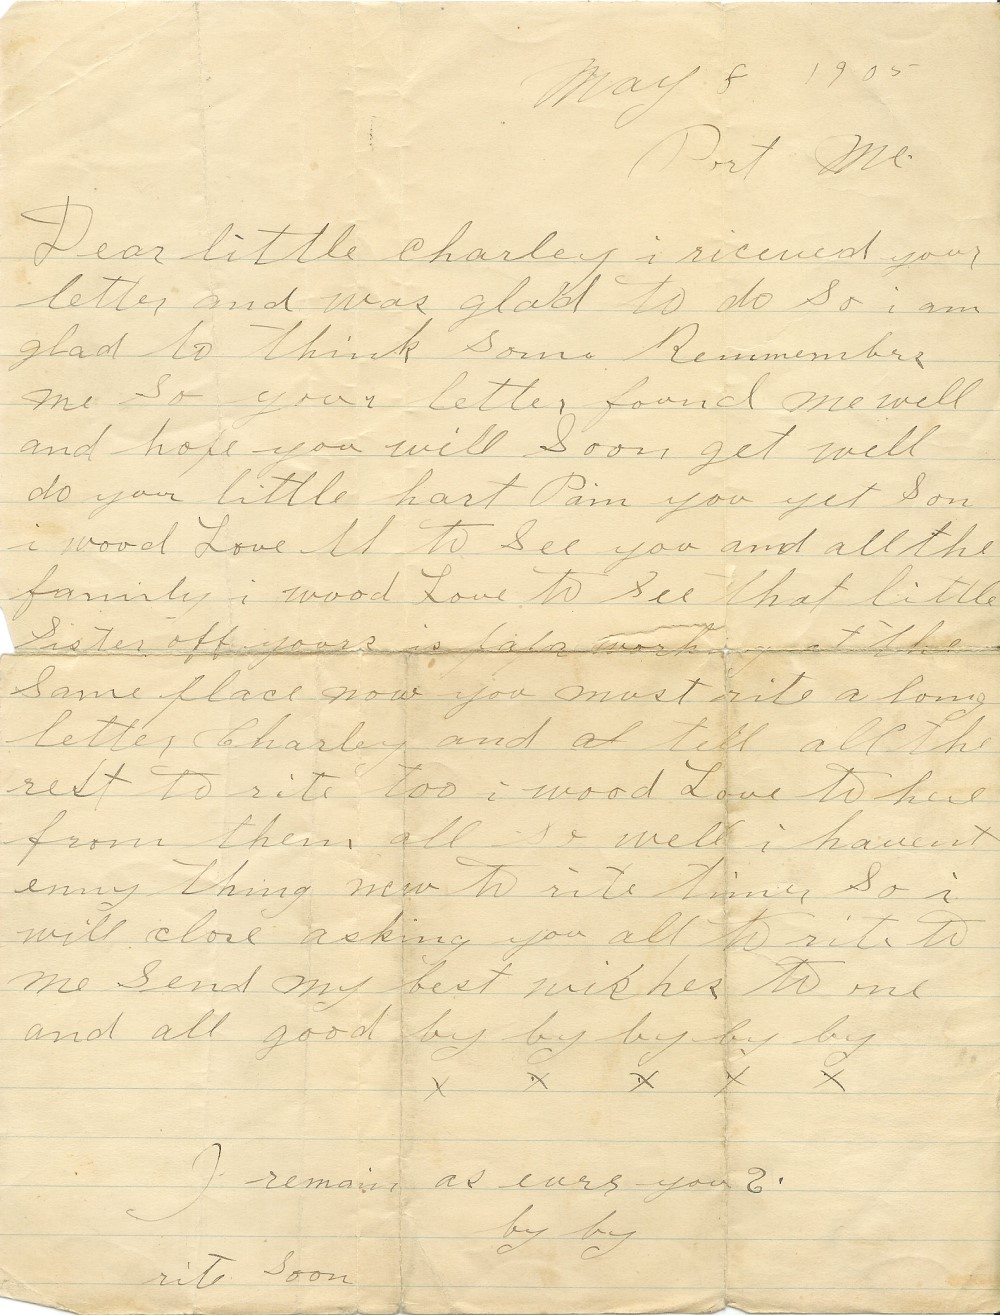 May 8 1905
Port Me.
Dear little charley i riceved your
letter and was glad to do so i am
glad to think some Remmembers
me So your letter found me well
and hope you will Soon get well
do your little hart Pain you yet Son
i wood Love to See you and all the
family i wood Love to See that little
Sister off yours is papa work at the
Same place now you must rite a long
letter Charley and tell all the
rest to rite too i wood Love to here
from them all well i havent
enny thing new to rite So i
will close asking you all to rite to
me Send my best wishes to one
and all good by by by by by
x x x x x
I remain as ever yours.
by by
rite Soon